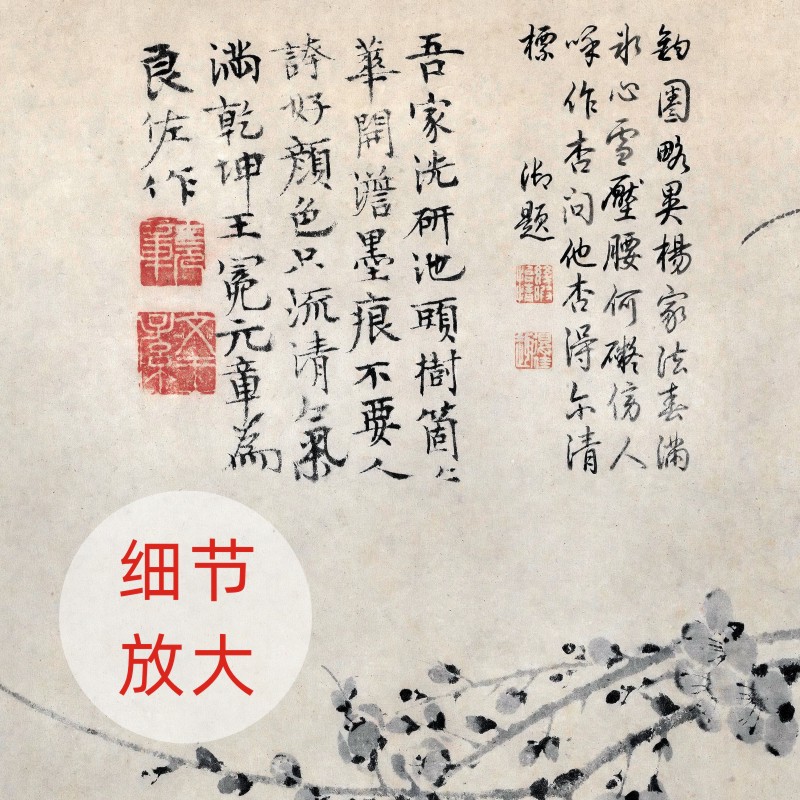 鈎圈略異楊家法春滿
冰心雪壓腰何礙傍人
喚作杏问他杏得尔清
標
御題
吾家洗研池頭樹箇々
華開澹墨痕不要人
誇好顏色只流清氣
滿乾坤王冕元章為
良佐作
文王子孫
细节
放大